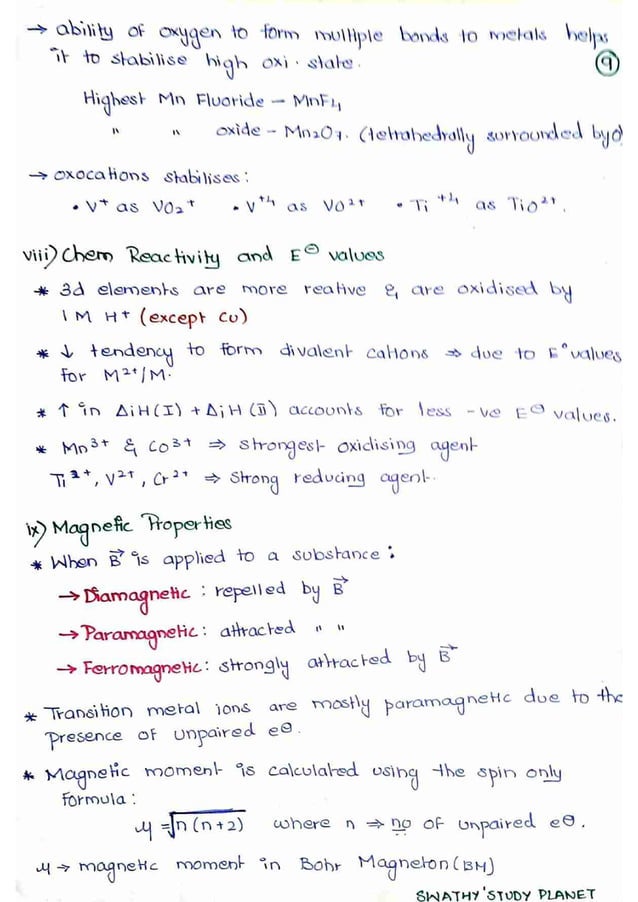 → ability of oxygen to form multiple bonds to metals helps
it to stabilise high oxi. state.
9
Highest Mn Fluoride – MnF4
" " oxide – Mn2O7. (tetrahedrally surrounded by O
→ oxocations stabilises:
• V⁺ as VO₂⁺ • V⁺⁴ as VO²⁺ • Ti⁺⁴ as TiO²⁺.
viii) Chem Reactivity and E⊖ values
* 3d elements are more reative & are oxidised by
1 M H⁺ (except Cu)
* ↓ tendency to form divalent cations ⇒ due to E° values
for M²⁺/M.
* ↑ in ΔiH(I) + ΔiH(II) accounts for less -ve E⊖ values.
* Mn³⁺ & Co³⁺ ⇒ strongest oxidising agent
Ti²⁺, V²⁺, Cr²⁺ ⇒ strong reducing agent.
ix) Magnetic Properties
* When B⃗ is applied to a substance:
→ Diamagnetic : repelled by B⃗
→ Paramagnetic : attracted " "
→ Ferromagnetic : strongly attracted by B⃗
* Transition metal ions are mostly paramagnetic due to the
presence of unpaired e⊖.
* Magnetic moment is calculated using the spin only
formula :
μ = √n(n+2) where n ⇒ no of unpaired e⊖.
μ → magnetic moment in Bohr Magneton (BM)
SWATHY'STUDY PLANET